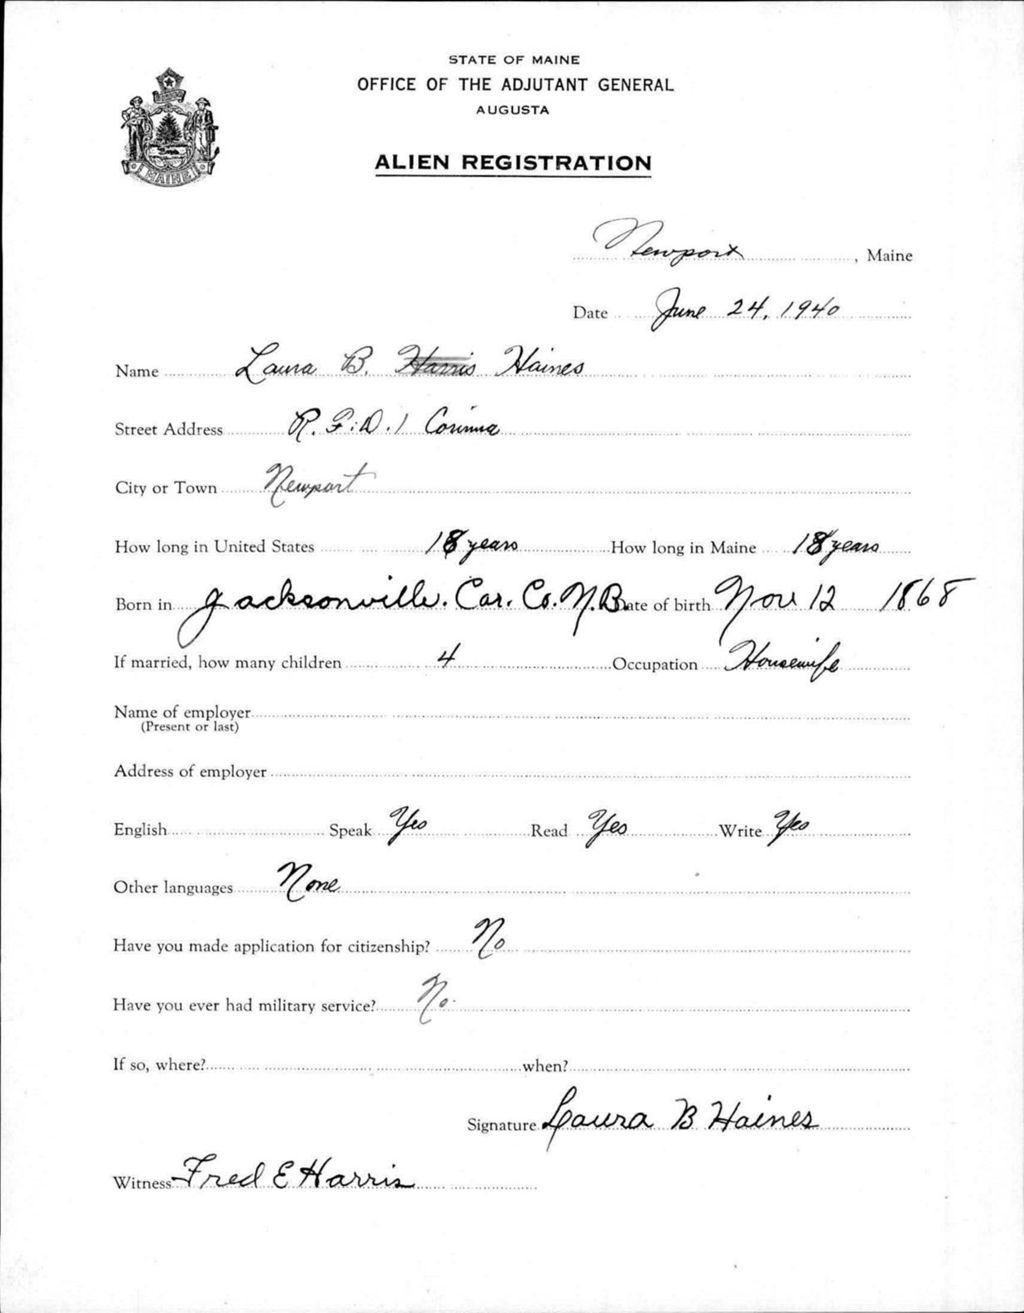 STATE OF MAINE
OFFICE OF THE ADJUTANT GENERAL
AUGUSTA
ALIEN REGISTRATION
MAINE
Newport, Maine
Date June 24, 1940
Name Laura B. Harris Haines
Street Address R.F.D. 1 Corinna
City or Town Newport
How long in United States 18 years How long in Maine 18 years
Born in Jacksonville. Car. Co. N.B. Date of birth Nov 12 1868
If married, how many children 4 Occupation Housewife
Name of employer
(Present or last)
Address of employer
English Speak Yes Read Yes Write Yes
Other languages None
Have you made application for citizenship? No
Have you ever had military service? No.
If so, where? when?
Signature Laura B Haines
Witness Fred E Harris